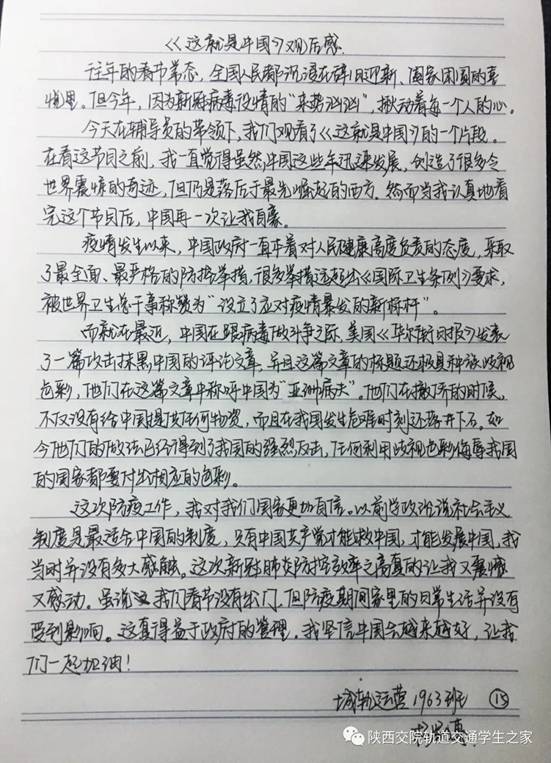 《这就是中国》观后感
往年的春节常态，全国人民都沉浸在辞旧迎新、阖家团圆的喜
悦里。但今年，因为新冠病毒疫情的“来势汹汹”，揪动着每一个人的心。
今天在辅导员的带领下，我们观看了《这就是中国》的一个片段。
在看这节目之前，我一直觉得虽然中国这些年迅速发展，创造了很多令
世界震惊的奇迹，但仍是落后于最先崛起的西方。然而当我认真地看
完这个节目后，中国再一次让我自豪。
疫情发生以来，中国政府一直本着对人民健康高度负责的态度，采取
了最全面、最严格的防控举措，很多举措远超出《国际卫生条例》要求，
被世界卫生总干事称赞为“设立了应对疫情暴发的新标杆”。
而就在最近，中国在跟病毒做斗争之际，美国《华尔街时报》发表
了一篇攻击抹黑中国的评论文章，并且这篇文章的标题还极具种族歧视
色彩，他们在这篇文章中称呼中国为“亚洲病夫”。他们在撤侨的时候，
不仅没有给中国提供任何物资，而且在我国发生危难时刻还落井下石。如
今他们的做法已经得到了我国的强烈反击，任何利用歧视色彩侮辱我国
的国家都要付出相应的色彩。
这次防疫工作，我对我们国家更加自信。以前学政治说社会主义
制度是最适合中国的制度，只有中国共产党才能救中国，才能发展中国，我
当时并没有多大感触。这次新冠肺炎防控效率之高真的让我又震惊
又感动。虽说我们春节没有出门，但防疫期间家里的日常生活并没有
受到影响。这真得益于政府的管理。我坚信中国会越来越好，让我
们一起加油！
城轨运营1963班 ⑮
陕西交院轨道交通学生之家